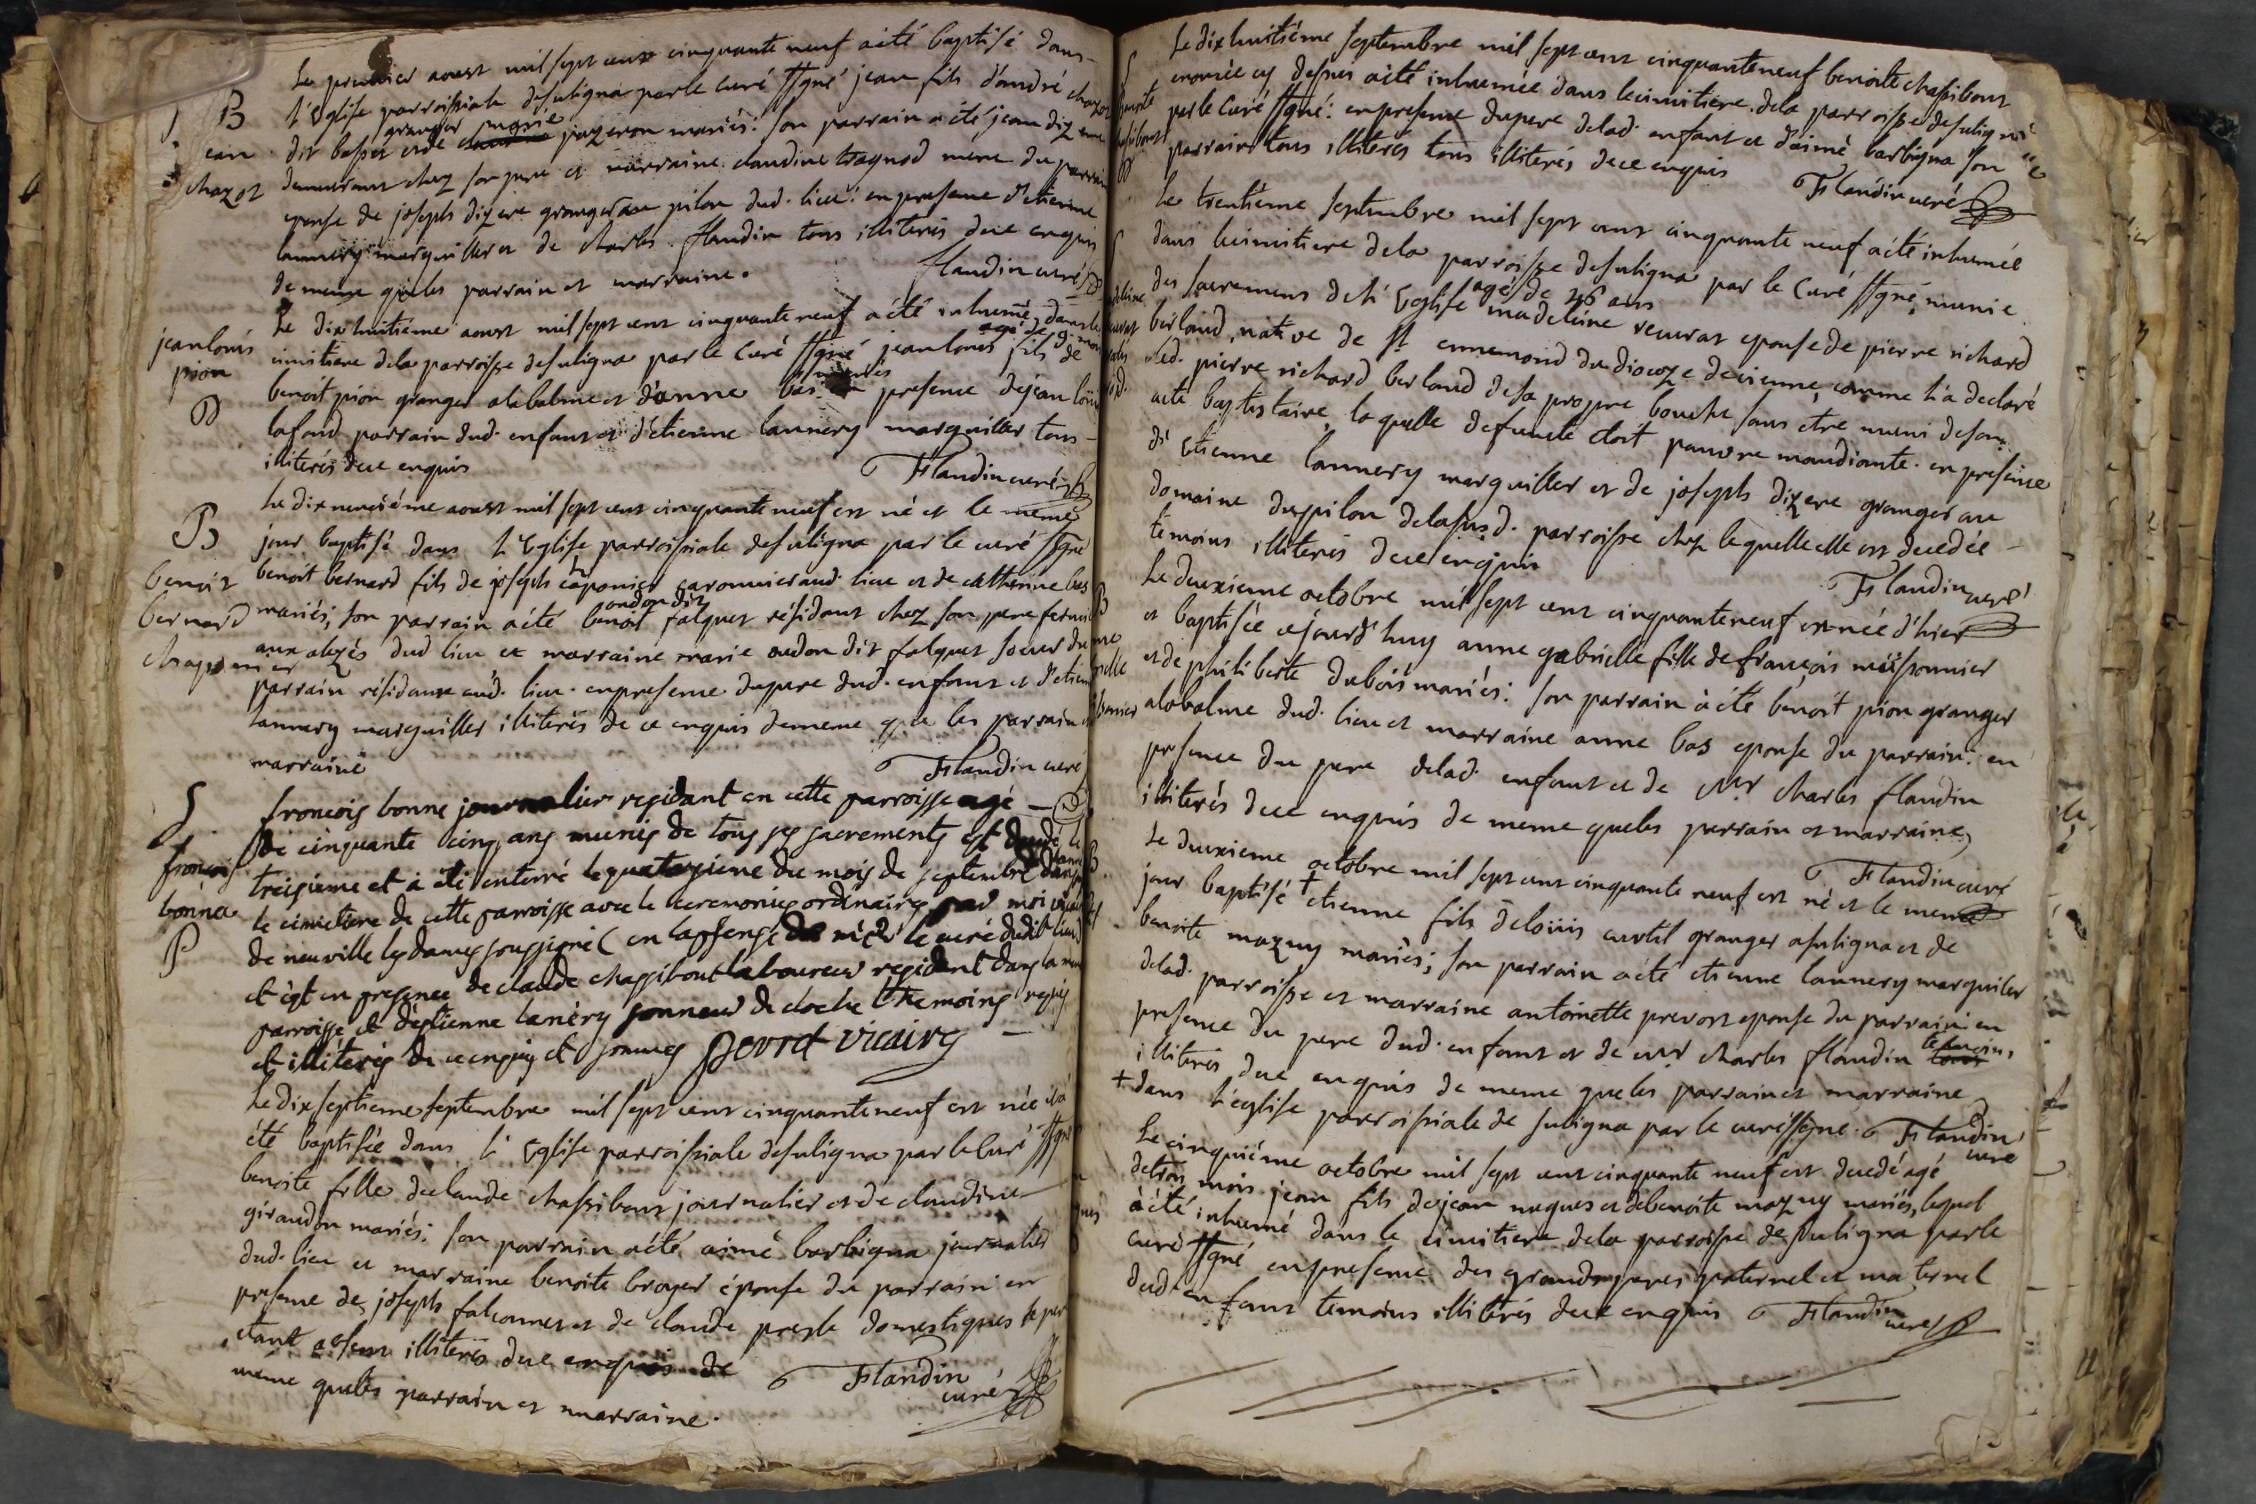 Le premier aoust mil sept cent cinquante neuf a été baptisé dans
l'Eglise parroissiale desuligna par le curé ssgné jean fils d'andré chazot
granger marie
dit basset et de pazeron mariés: son parrain a été jean dizere
demeurant chez son pere et marraine claudine tragnod mere du parrain
epouse de joseph dizere granger au pilon dud. lieu: en presence d'etienne
lannery marguiller et de charles flandin tous illiterés de ce enquis
de meme queles parrain et marraine.
flandin curé
B
jean
chazot
Le dix huitiéme aoust mil sept cent cinquante neuf a été inhumé dans le
cimitiere dela parroisse desuligna par le curé ssgné jean louis fils de
benoit pion granger alabalme et d'anne bas presence de jean louis
lafond parrain dud. enfant et d'etienne lannery marguiller tous
illiterés de ce enquis
Flandin curé
jean louis
pion
Le dix neuviéme aoust mil sept cent cinquante neuf est né et le meme
jour baptisé dans l'Eglise parroissiale desuligna par le curé ssgné
benoit bernard fils de joseph caponier aud. lieu et de catherine bas
oudon dit
mariés; son parrain a été benoit falquet résidant chez son pere fermier
aux alezés dud lieu et marraine marie oudon dit falquet soeur du
parrain résidante aud. lieu. en presence du pere dud. enfant et d'etienne
lannery marguiller illiterés de ce enquis dememe que les parrain et
marraine
Flandin curé
B
benoit
bernard
chaponier
francois bonne journalier residant en cette parroisse agé
de cinquante cinq ans munis de tous ses sacrements est decedé le
treisieme et à été enterré le quatorsiene du mois de septembre dans
le cimetiere de cette parroisse avec le ceremonies ordinaires par moi vicaire
de neuville les dames soussigné (en lapsence de le curé dudit lieu)
et c'est en presence de claude chassibout laboureur residant dans la meme
parroisse et d'estienne lanéry sonneur de cloche themoins requis
et illiterés de ce enquis et sommes vicaire
S
francois
bonne
Le dix septieme septembre mil sept cent cinquante neuf est née et à
été baptisée dans l'Eglise parroissiale desuligna par le curé ssgné
benoite fille de claude chassibout journalier et de claudine
giraudon mariés: son parrain a été aimé barbigna journalier
dud. lieu et marraine benoite broyer épouse du parrain en
presence de joseph falconnet et de claude presle domestiques le pere
étant absent illiterés de ce enquis de
même queles parrain et marraine.
Flandin
curé
Le dix huitiéme septembre mil sept cent cinquante neuf benoite chassibout
enoncée cy dessus a été inhumée dans le cimitiere dela parroisse desuligna
par le curé ssgné: en presence du pere delad. enfant et d'aimé barbigna son
parrain tous illiterés tous illiterés de ce enquis
Flandin curé
Le trentième septembre mil sept cent cinquante neuf a été inhumée
dans le cimitiere dela parroisse desuligna par le curé ssgné, munie
agé de 46 ans
des sacremens de l'Eglise madeleine reverat epouse de pierre richard
berland, native de st ennemond du dioceze de vienne, comme l'a declaré
led. pierre richard berland desa propre bouche sans etre muni de son
acte baptistaire, laquelle defuncte etoit pauvre mandiante. en presence
d'Etienne lannery marguiller et de joseph dizere granger au
domaine du pilon delasusd. parroisse chez lequelle elle est decedée
temoins illiterés de ce enquis
Flandin curé
Le deuxieme octobre mil sept cent cinquante neuf est née d'hier
et baptisée cejourd'huy anne gabrielle fille de françois missonnier
et de philiberte dubois mariés: son parrain à été bénoit pion granger
alabalme dud. lieu et marraine anne bas epouse du parrain: en
presence du pere delad. enfant et de Mr charles flandin
illiterés de ce enquis de meme queles parrain et marraine
Flandin curé
Le deuxieme octobre mil sept cent cinquante neuf est né et le meme
jour baptisé + etienne fils de louis curtil granger asuligna et de
benoite mazuy mariés; son parrain a été etienne lannery marguiler
delad. parroisse et marraine antoinette prevost epouse du parrain en
presence du pere dud. enfant et de mr charles flandin temoins
illiterés de ce enquis de meme queles parrain et marraine
+ dans l'église parroissiale de suligna par le curé ssgné. Flandin
curé
Le cinquiéme octobre mil sept cent cinquante neuf est decedé agé
de trois mois jean fils de jean nugues et de benoite mazuy mariés, lequel
a été inhumé dans le cimitiere dela parroisse de suligna par le
curé ssgné en presence des grands peres paternel et maternel
dud. enfant temoins illiterés de ce enquis Flandin
curé